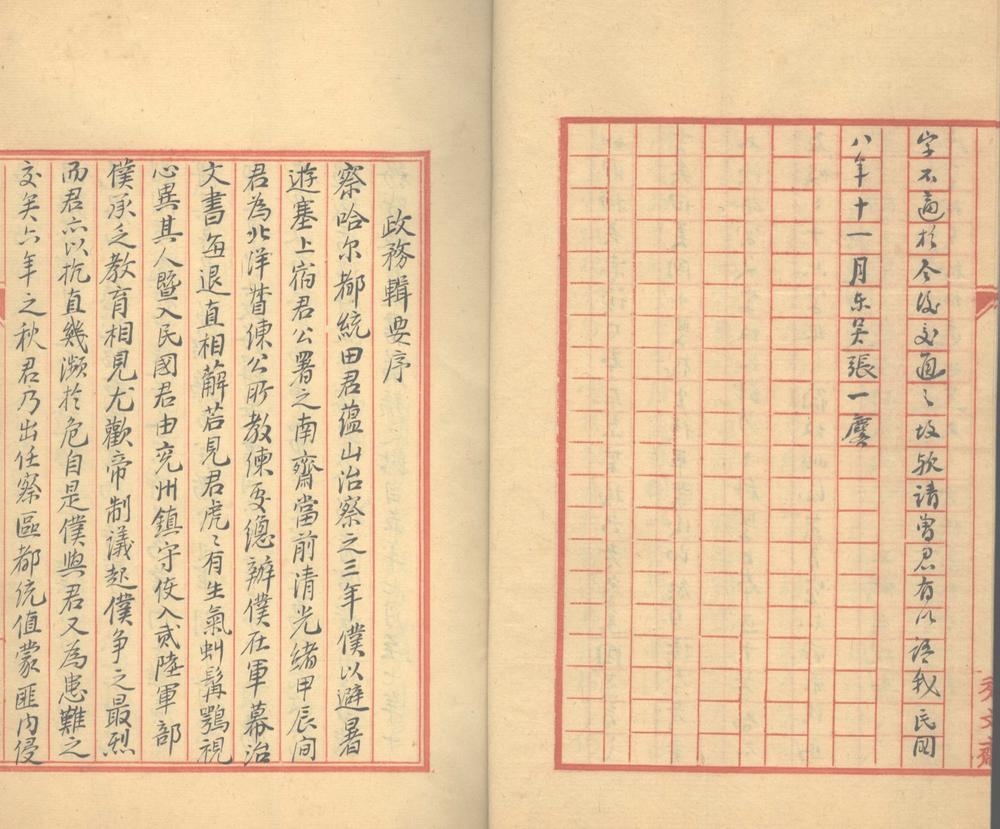 字不適於今後交通之故歟請曾君有以語我民國
八年十一月东吴張一麐
政務輯要序
察哈尔都統田君蕴山治察之三年僕以避暑
遊塞上宿君公署之南齋當前清光緒甲辰间
君為北洋督練公所教練處總辦僕在軍幕治
文書每退直相薢茩見君虎〻有生氣虯髯鶚視
心異其人暨入民國君由兖州鎮守使入贰陸軍部
僕承乏教育相見尤歡帝制議起僕争之最烈
而君亦以抗直幾瀕於危自是僕與君又為患難之
交矣六年之秋君乃出任察區都统值蒙匪内侵